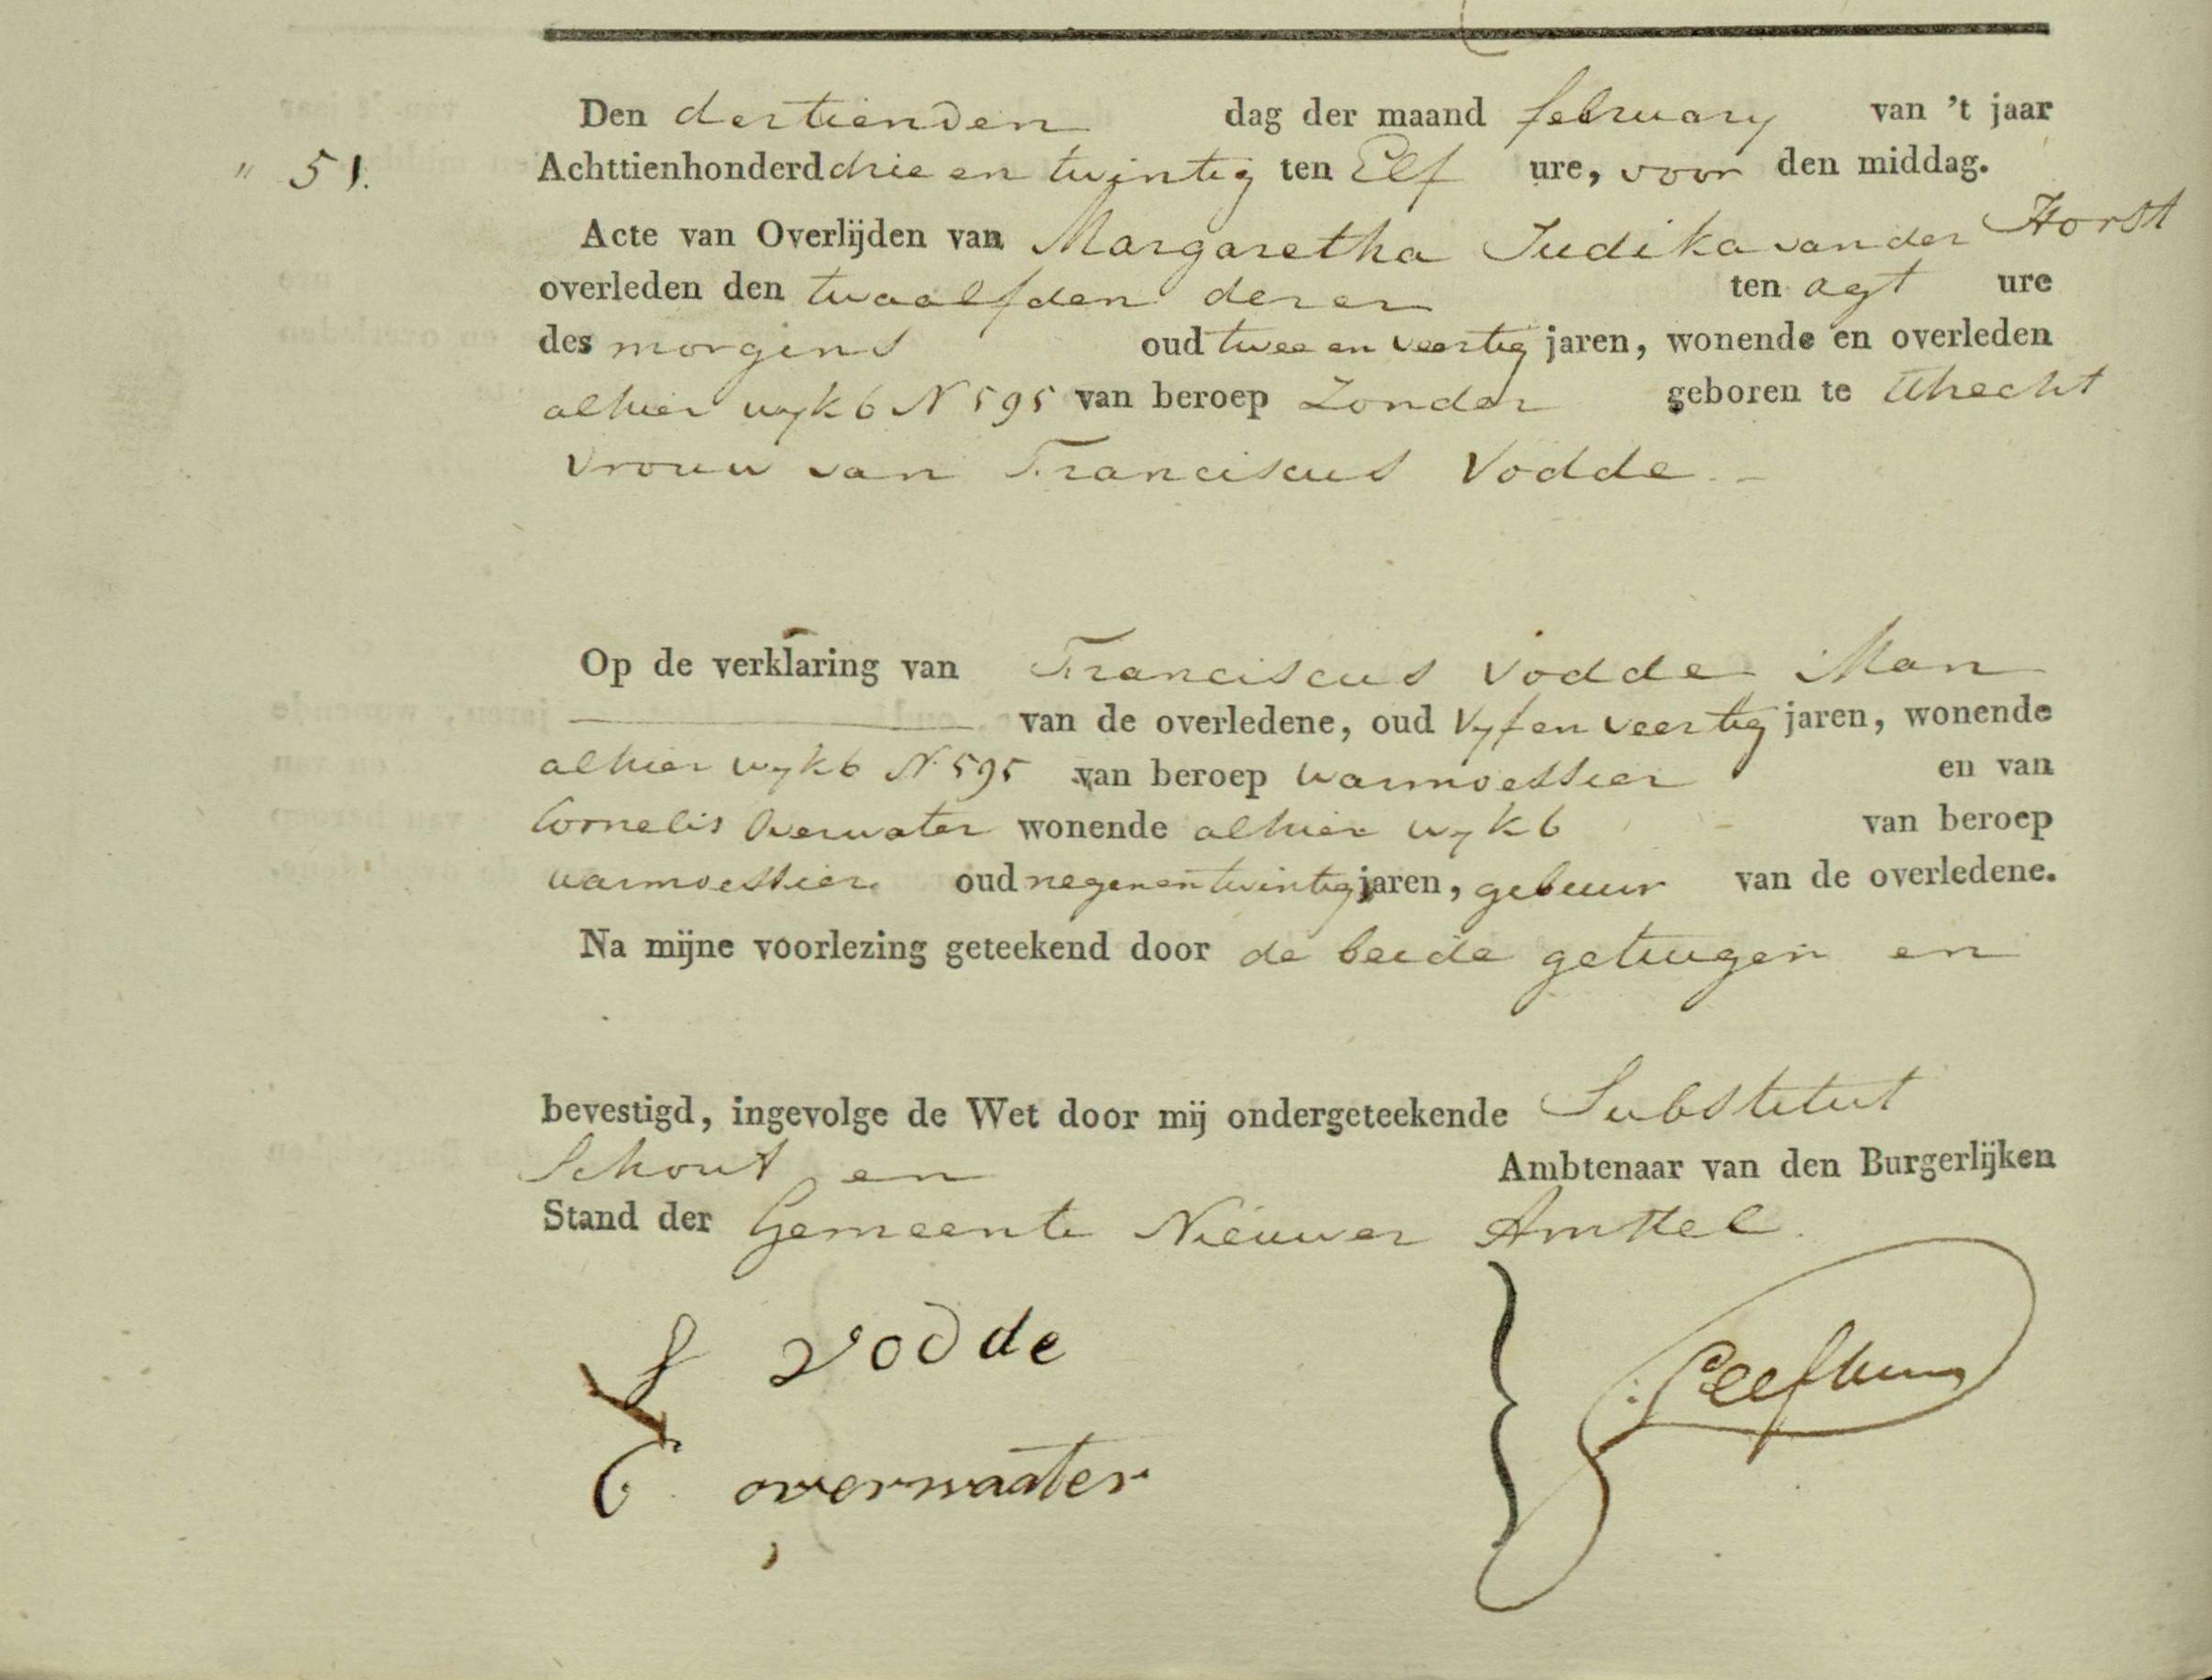 Den dertienden dag der maand february van 't jaar
" 51. Achttienhonderd drie en twintig ten Elf ure, voor den middag.
Acte van Overlijden van Margaretha Judika van der Horst
overleden den twaalfden dezer ten agt ure
des morgens oud twee en veertig jaren, wonende en overleden
alhier wyk 6 N 595 van beroep Zonder geboren te Utrecht
Vrouw van Franciscus Vodde
Op de verklaring van Franciscus Vodde Man
van de overledene, oud Vyf en veertig jaren, wonende
alhier wyk 6 N 595 van beroep warmoessier en van
Cornelis Overwater wonende alhier wyk 6 van beroep
warmoessier oud negen en twintig jaren, gebuur van de overledene.
Na mijne voorlezing geteekend door de beide getuigen en
bevestigd, ingevolge de Wet door mij ondergeteekende Substitut
Schout en Ambtenaar van den Burgerlijken
Stand der Gemeente Nieuwer Amstel.
F Vodde
C overwaater